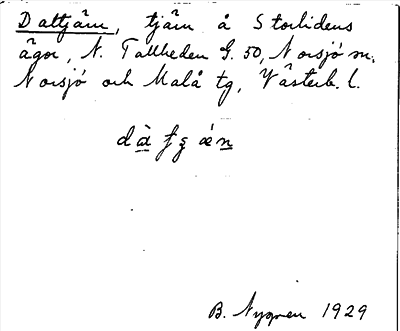 Dattjärn, tjärn å Storlidens
ägor, N. Tallheden G. 50, Norsjö sn,
Norsjö och Malå tg, Västerb. l.
B. Nygren 1929